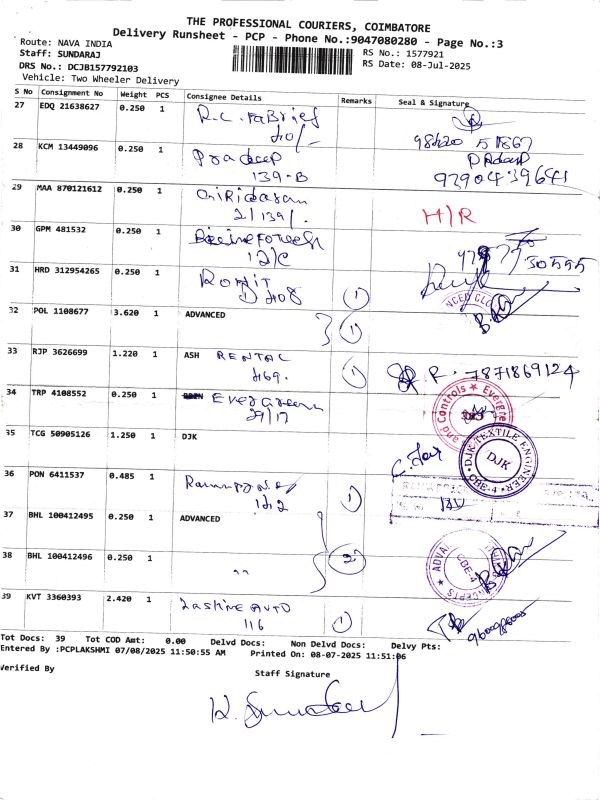 THE PROFESSIONAL COURIERS, COIMBATORE
Delivery Runsheet - PCP - Phone No.:9047080280 - Page No.:3
Route: NAVA INDIA
Staff: SUNDARAJ
DRS No.: DCJB157792103
Vehicle: Two Wheeler Delivery
RS No.: 1577921
RS Date: 08-Jul-2025
S No Consignment No Weight PCS Consignee Details Remarks Seal & Signature
27 EDQ 21638627 0.250 1 R.C. FaBrief
28 KCM 13449096 0.250 1 Pradeep 98420 51867
139-B Pradeep
9290439641
29 MAA 870121612 0.250 1 Giridaran
2/139/. H/R
30 GPM 481532 0.250 1
12/C
31 HRD 312954265 0.250 1 Rohit 1
32 POL 1108677 3.620 1 ADVANCED 1
33 RJP 3626699 1.220 1 ASH RENTAL 1 R. 7871869124
469.
34 TRP 4108552 0.250 1 Evergreen
29/17
and Controls * Evergre
35 TCG 50905126 1.250 1 DJK
DJK TEXTILE ENGINEER
DJK
CBE-4
36 PON 6411537 0.485 1 1
142
37 BHL 100412495 0.250 1 ADVANCED
38 BHL 100412496 0.250 1 " 2
CBE-4
39 KVT 3360393 2.420 1 Lastine AUTO 1
116
Tot Docs: 39 Tot COD Amt: 0.00 Delvd Docs: Non Delvd Docs: Delvy Pts:
Entered By :PCPLAKSHMI 07/08/2025 11:50:55 AM Printed On: 08-07-2025 11:51:06
Verified By Staff Signature